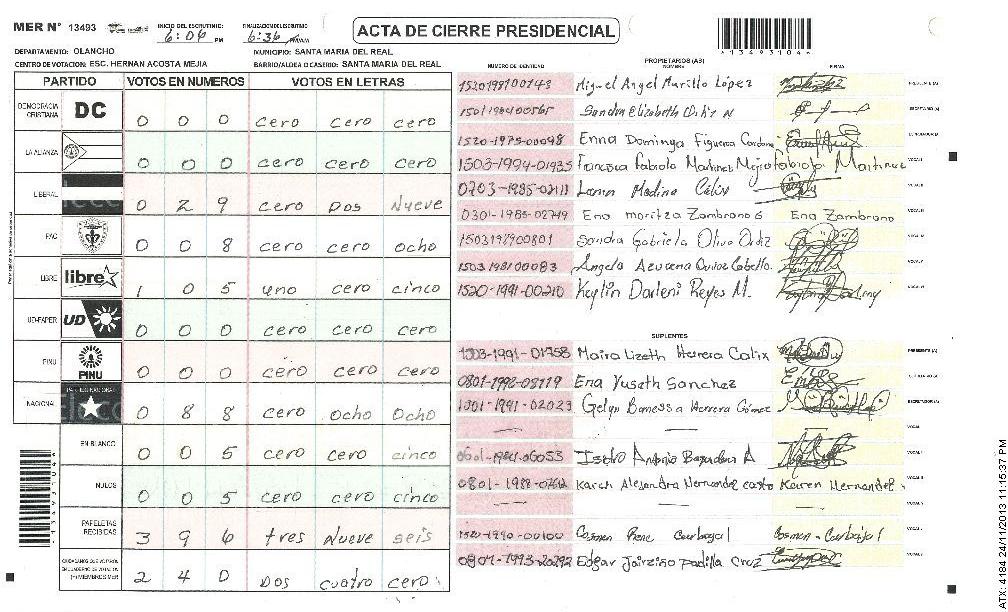 MER N° 13493 INICIO DEL ESCRUTINIO: 6:04 PM FINALIZACION ESCRUTINIO 6:36 ACTA DE CIERRE PRESIDENCIAL 13493104
DEPARTAMENTO: OLANCHO MUNICIPIO: SANTA MARIA DEL REAL
CENTRO DE VOTACION: ESC. HERNAN ACOSTA MEJIA BARRIO/ALDEA O CASERIO: SANTA MARIA DEL REAL
PARTIDO VOTOS EN NUMEROS VOTOS EN LETRAS
DEMOCRACIA CRISTIANA DC 0 0 0 cero cero cero
LA ALIANZA 0 0 0 cero cero cero
LIBERAL 0 2 9 cero Dos Nueve
PAC 0 0 8 cero cero ocho
LIBRE libre 1 0 5 uno cero cinco
UD-FAPER UD 0 0 0 cero cero cero
PINU PINU 0 0 0 cero cero cero
NACIONAL 0 8 8 cero Ocho Ocho
EN BLANCO 0 0 5 cero cero cinco
NULOS 0 0 5 cero cero cinco
PAPELETAS RECIBIDAS 3 9 6 tres Nueve seis
2 4 0 Dos cuatro cero
PROPIETARIOS (AS)
NUMERO DE IDENTIDAD NOMBRE FIRMA
Miguel Angel Murillo López
Sandra Elizabeth Ordiz N
1520-1975-00098 Enna Dominga Figueroa
1503-1994-01935 Martinez Mejia Fabiola Martinez
0703-1985-02111 Medina Calix
0301-1985-02749 Ena Moritza Zambrano G Ena Zambrano
1503197900801 Sandra Gabriela Olivo Ordiz
1503198100083 Angela Azucena
1520-1991-00210 Keytin Darleni Reyes M.
SUPLENTES
1503-1991-01758 Maira Lizeth Herrera Calix
0801-1992-08119 Ena Yuseth Sanchez
Gelyn Banessa Herrera Gómez
Isidro Antonio A
Karen Alejandra Hernandez Karen Hernandez
1520-1990-00100 Cosmen Rene Carbajal Cosmen Carbajal
Edgar Jairzino padilla Cruz
ATX: 4184 24/11/2013 11:15:37 PM